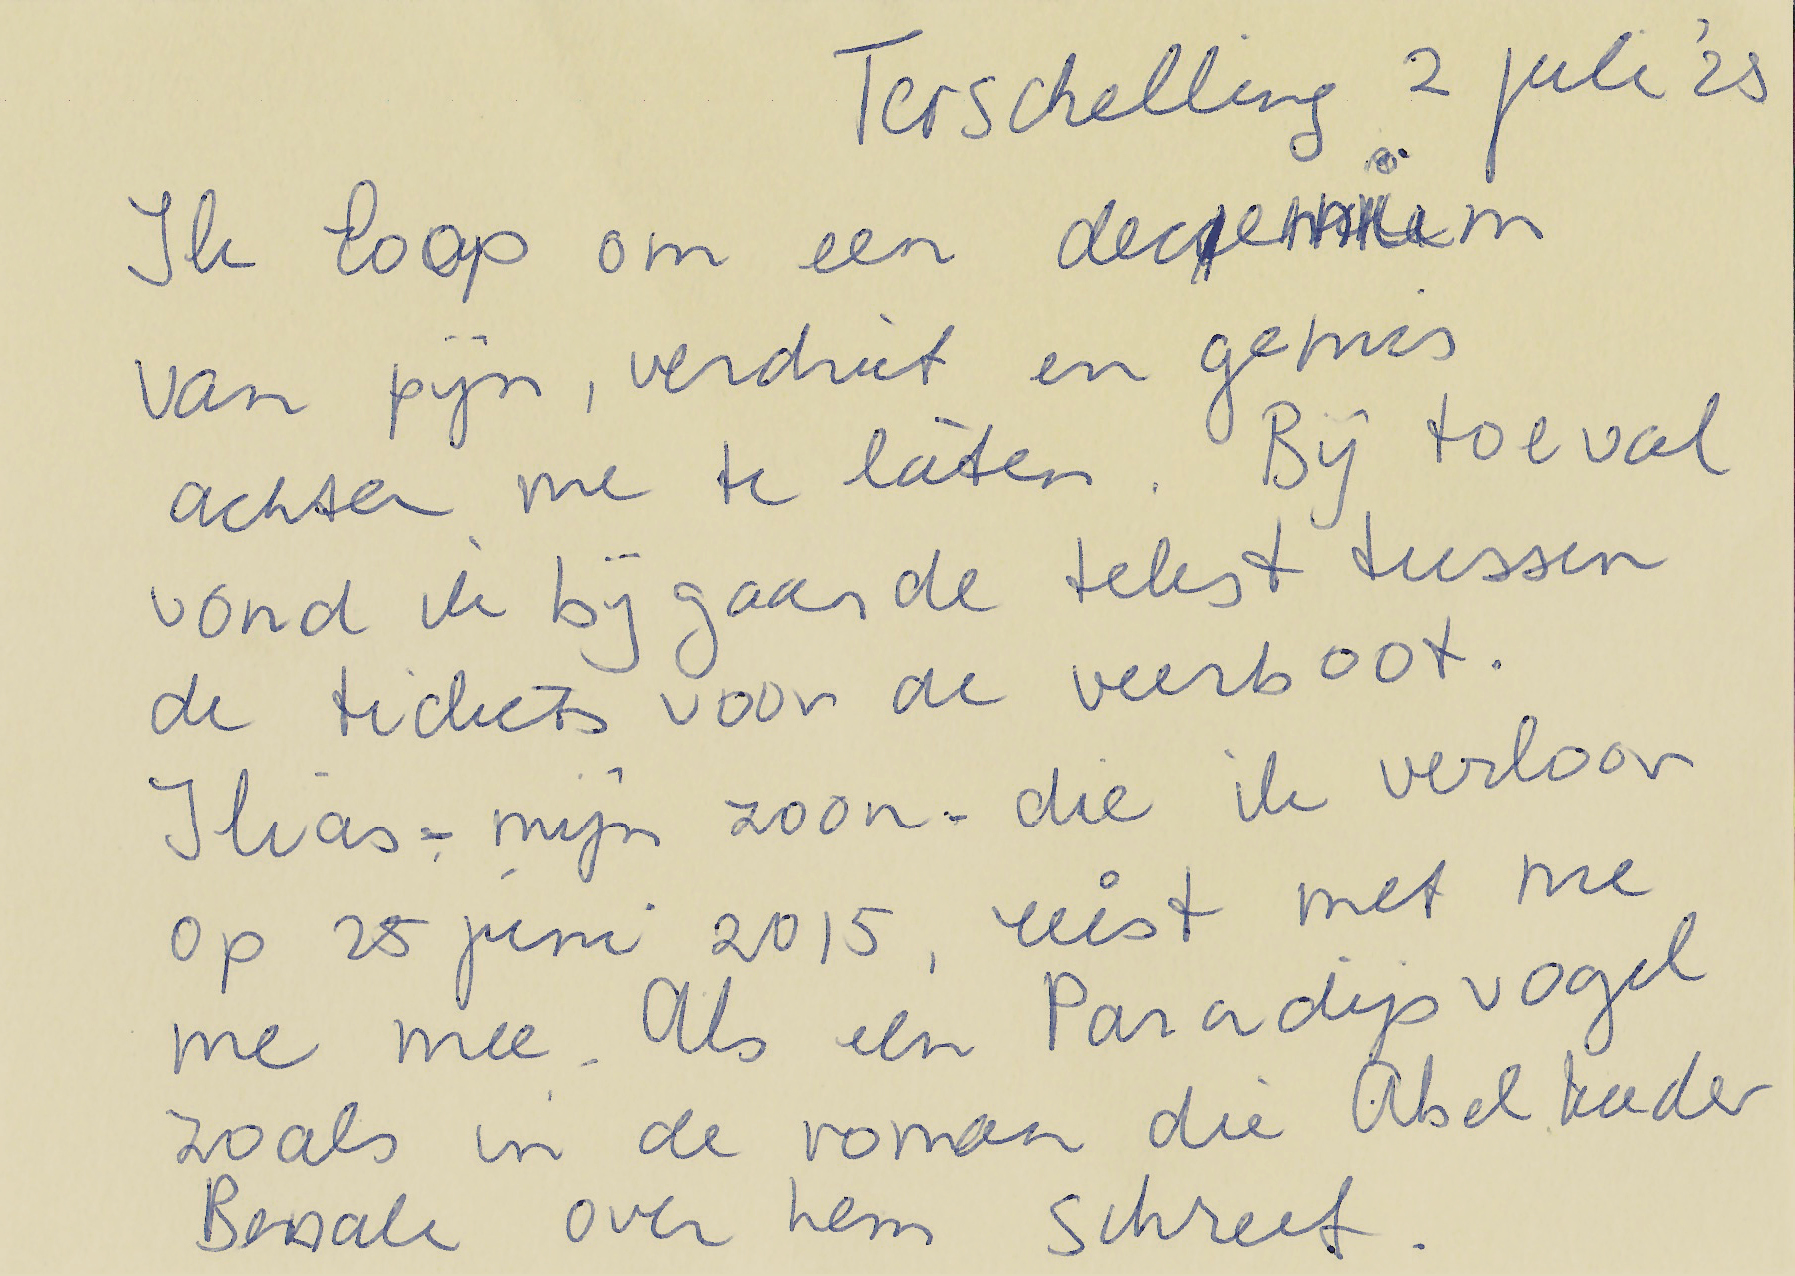 Terschelling 2 juli '25
Ik loop om een decennium
van pijn, verdriet en gemis
achter me te laten. Bij toeval
vond ik bijgaande tekst tussen
de tickets voor de veerboot.
Ilias - mijn zoon - die ik verloor
op 25 juni 2015, reist met me
me mee. Als een Paradijsvogel
zoals in de roman die Abdelkader
Benali over hem schreef.